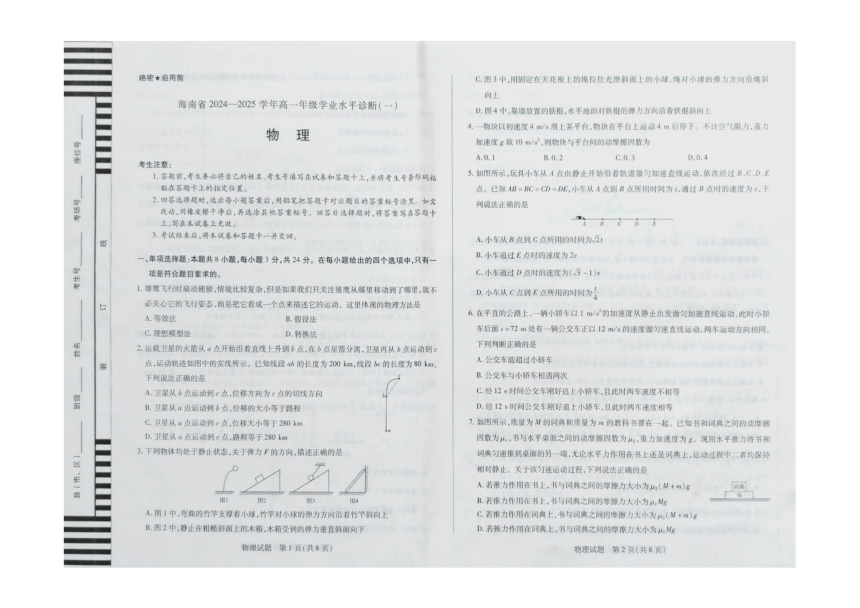 绝密★启用前
海南省2024—2025学年高一年级学业水平诊断(一)
物 理
考生注意:
1.答题前,考生务必将自己的姓名、考生号填写在试卷和答题卡上,并将考生号条形码粘
贴在答题卡上的指定位置。
2.回答选择题时,选出每小题答案后,用铅笔把答题卡对应题目的答案标号涂黑。如需
改动,用橡皮擦干净后,再选涂其他答案标号。回答非选择题时,将答案写在答题卡
上,写在本试卷上无效。
3.考试结束后,将本试卷和答题卡一并交回。
一、单项选择题:本题共8小题,每小题3分,共24分。在每小题给出的四个选项中,只有一
项是符合题目要求的。
1.雄鹰飞行时扇动翅膀,情境比较复杂,但是如果我们只关注雄鹰从哪里移动到了哪里,就不
必关心它的飞行姿态,而是把它看成一个点来描述它的运动。这里体现的物理方法是
A.等效法 B.假设法
C.理想模型法 D.转换法
2.运载卫星的火箭从a点开始沿着直线上升到b点,在b点星箭分离,卫星再从b点运动到c
点,运动轨迹如图中的实线所示。已知线段ab的长度为200 km,线段bc的长度为80 km,
下列说法正确的是
A.卫星从b点运动到c点,位移方向为c点的切线方向
B.卫星从a点运动到b点,位移的大小等于路程
C.卫星从a点运动到c点,位移大小等于280 km
D.卫星从a点运动到c点,路程等于280 km
3.下列物体均处于静止状态,关于弹力F的方向,描述正确的是
图1 图2 图3 图4
A.图1中,弯曲的竹竿支撑着小球,竹竿对小球的弹力方向沿着竹竿斜向上
B.图2中,静止在粗糙斜面上的木箱,木箱受到的弹力垂直斜面向下
物理试题 第1页(共8页)
C.图3中,用固定在天花板上的绳拉住光滑斜面上的小球,绳对小球的弹力方向沿绳斜
向上
D.图4中,靠墙放置的铁棍,水平地面对铁棍的弹力方向沿着铁棍斜向上
4.一物块以初速度4 m/s滑上某平台,物块在平台上运动4 m后停下。不计空气阻力,重力
加速度g取10 m/s²,则物块与平台间的动摩擦因数为
A.0.1 B.0.2 C.0.3 D.0.4
5.如图所示,玩具小车从A点由静止开始沿着轨道做匀加速直线运动,依次经过B、C、D、E
点。已知AB=BC=CD=DE,小车从A点到B点所用时间为t,通过B点时的速度为v,下
列说法正确的是
A B C D E
A.小车从B点到C点所用的时间为√2t
B.小车通过E点时的速度为2v
C.小车通过D点时的速度为(√3-1)v
D.小车从C点到E点所用的时间为t/4
6.在平直的公路上,一辆小轿车以1 m/s²的加速度从静止出发做匀加速直线运动,此时小轿
车后面s=72 m处有一辆公交车正以12 m/s的速度做匀速直线运动,两车运动方向相同。
下列判断正确的是
A.公交车能超过小轿车
B.公交车与小轿车相遇两次
C.经12 s时间公交车刚好追上小轿车,且此时两车速度不相等
D.经12 s时间公交车刚好追上小轿车,且此时两车速度相等
7.如图所示,质量为M的词典和质量为m的教科书摞在一起。已知书和词典之间的动摩擦
因数为μ₁,书与水平桌面之间的动摩擦因数为μ₂,重力加速度为g。现用水平推力将书和
词典匀速推到桌面的另一端,无论水平力作用在书上还是词典上,运动过程中二者均保持
相对静止。关于该匀速运动过程,下列说法正确的是
A.若推力作用在书上,书与词典之间的摩擦力大小为μ₂(M+m)g
B.若推力作用在书上,书与词典之间的摩擦力大小为μ₁Mg
C.若推力作用在词典上,书与词典之间的摩擦力大小为μ₂(M+m)g
D.若推力作用在词典上,书与词典之间的摩擦力大小为μ₁Mg
词典
书
物理试题 第2页(共8页)
座位号
考场号
考生号
姓名
班级
县(市、区)
线
订
装